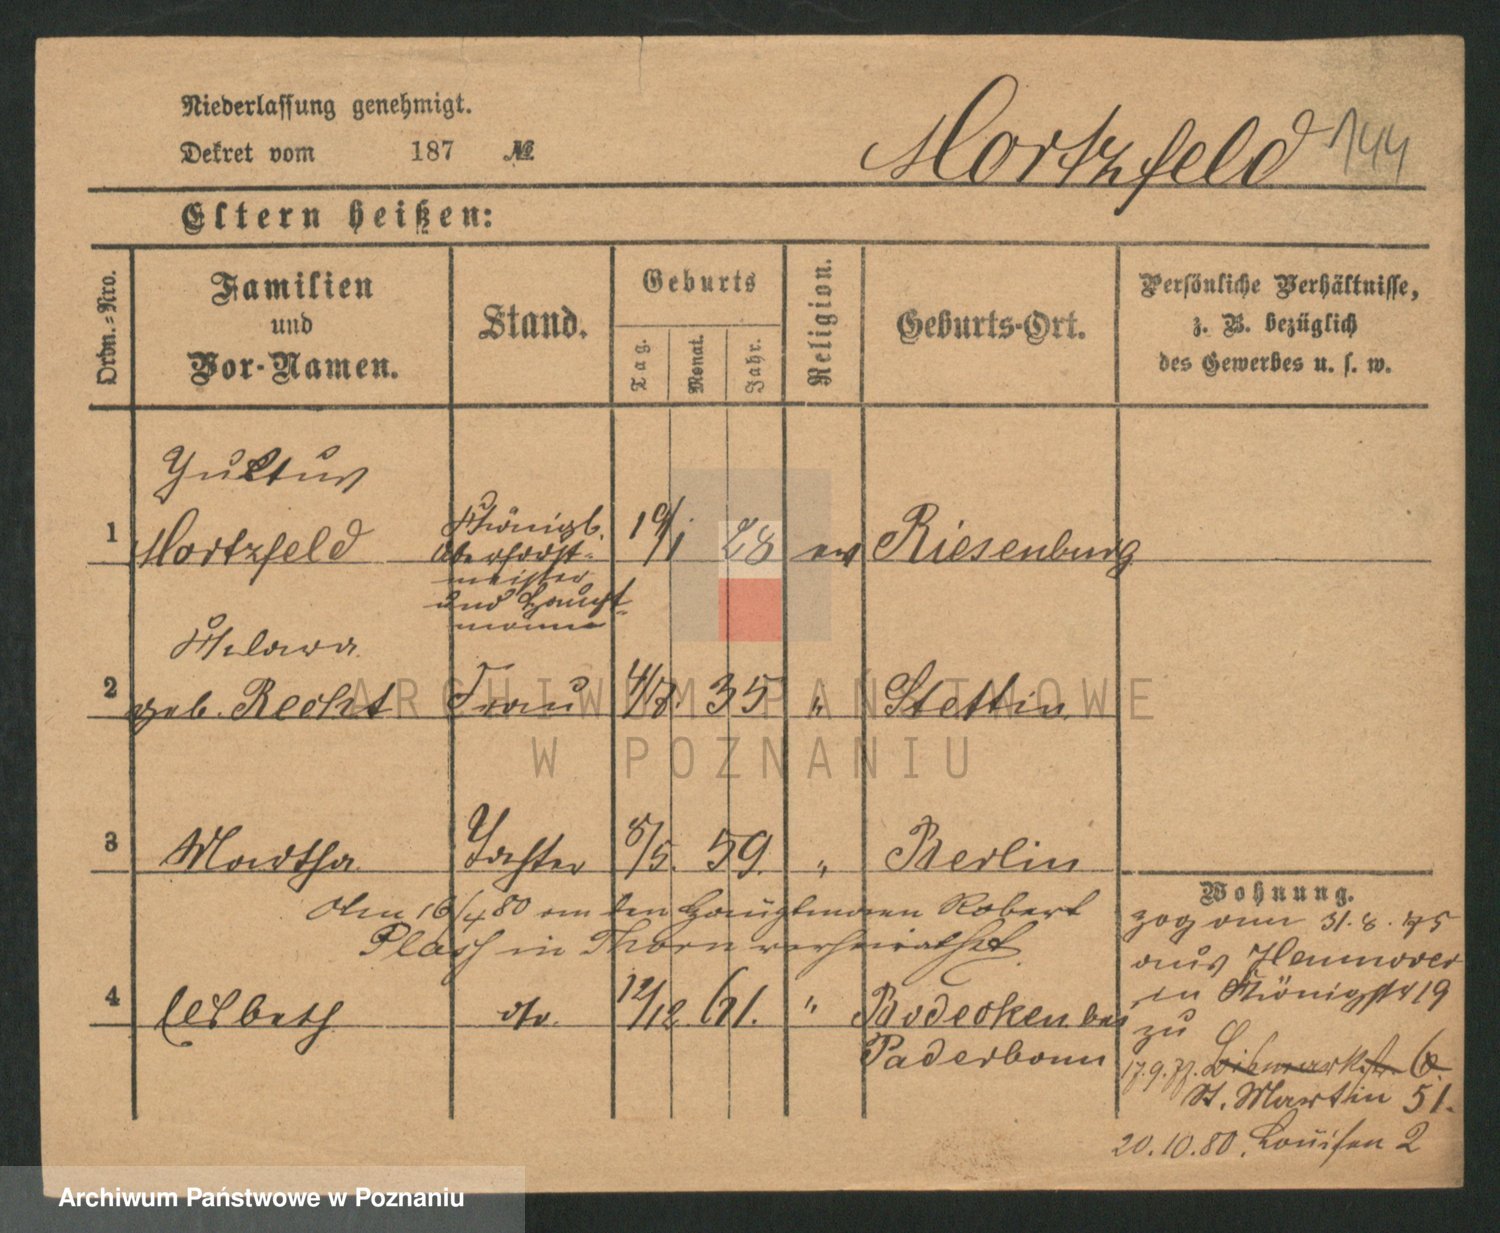 Niederlassung genehmigt.
Dekret vom 187 №
Mortzfeld 144
Eltern heißen:
Ordn.-Nro.
Familien und Vor-Namen.
Stand.
Geburts
Tag.
Monat.
Jahr.
Religion.
Geburts-Ort.
Persönliche Verhältnisse,
z. B. bezüglich
des Gewerbes u. s. w.
Mortzfeld
Königl.
Oberforst-
meister
und Haupt-
mann
1 19/1 28 ev Riesenburg
2 geb. Recht Frau 35 " Stettin
3 Martha Tochter 8/5. 59. " Berlin
Am 16/4 80 an den Hauptmann Robert
in Thorn verheirathet.
4 Elsbeth do. 12/12. 61. " Bodecken bei
Paderborn
Wohnung.
zog am 31.8.75
aus Hannover
in Königstr 19
zu
17.9.77. Bismarkstr. 6.
St. Martin 51.
20.10.80. Louisen 2
ARCHIWUM PAŃSTWOWE
W POZNANIU
Archiwum Państwowe w Poznaniu